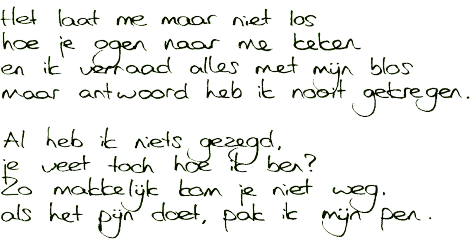 Het laat me maar niet los
hoe je ogen naar me keken
en ik verraad alles met mijn blos
maar antwoord heb ik nooit gekregen.
Al heb ik niets gezegd,
je weet toch hoe ik ben?
Zo makkelijk kom je niet weg.
als het pijn doet, pak ik mijn pen.